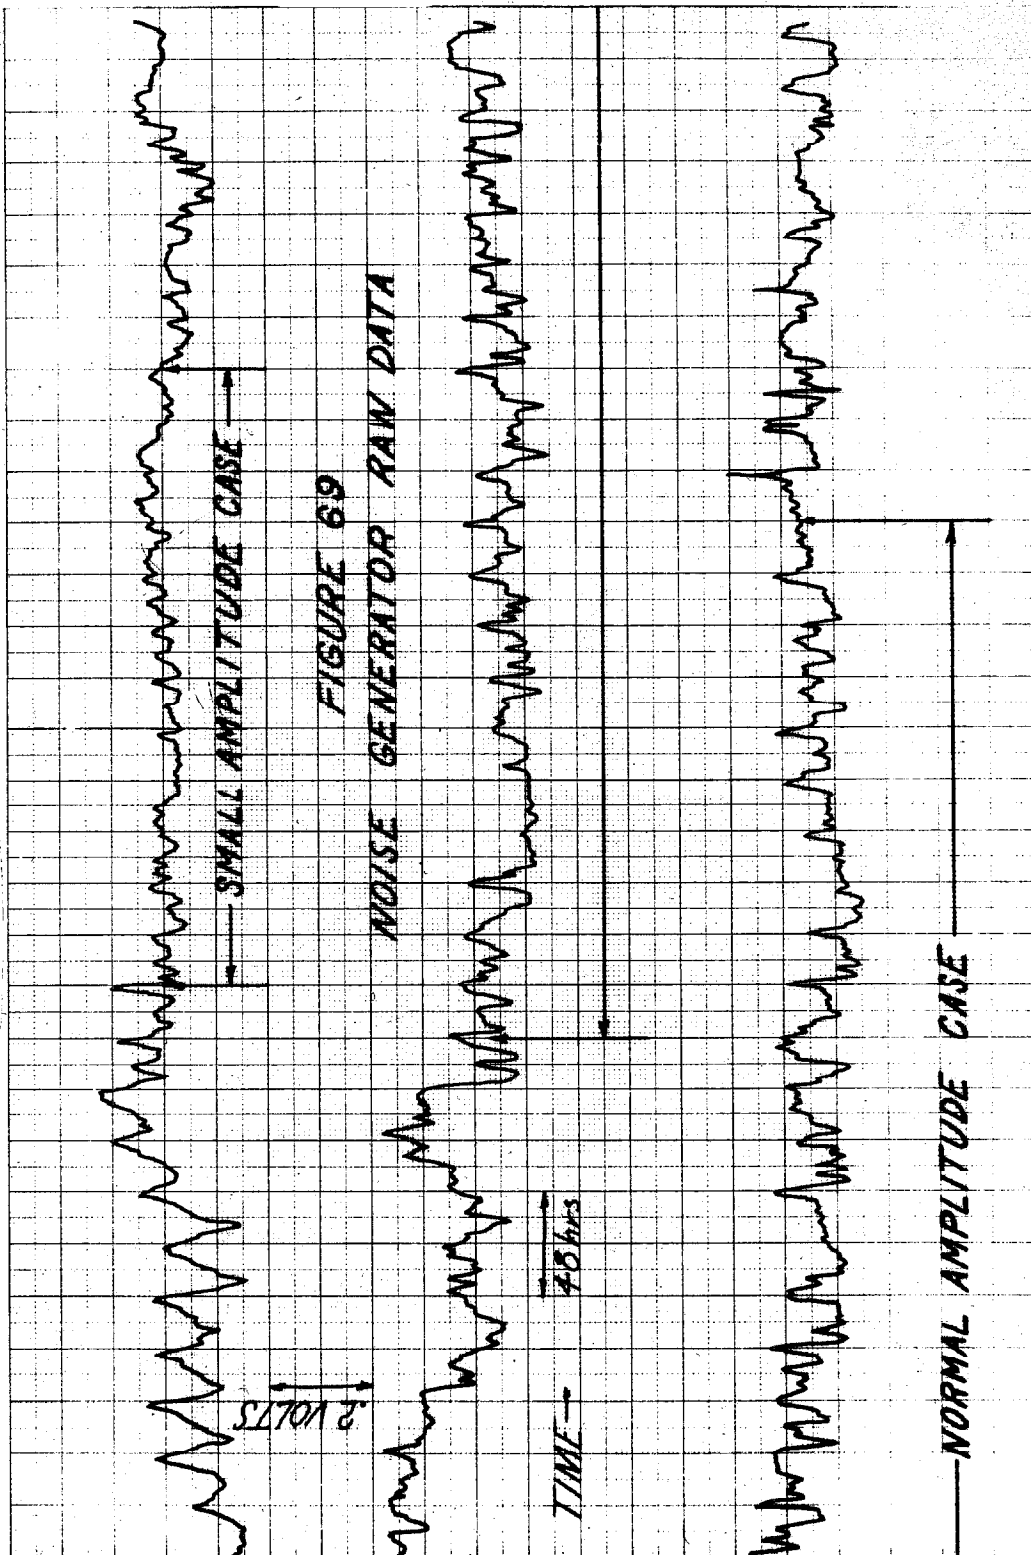 SMALL AMPLITUDE CASE
FIGURE 69
NOISE GENERATOR RAW DATA
.2 VOLTS
48 hrs
TIME
NORMAL AMPLITUDE CASE